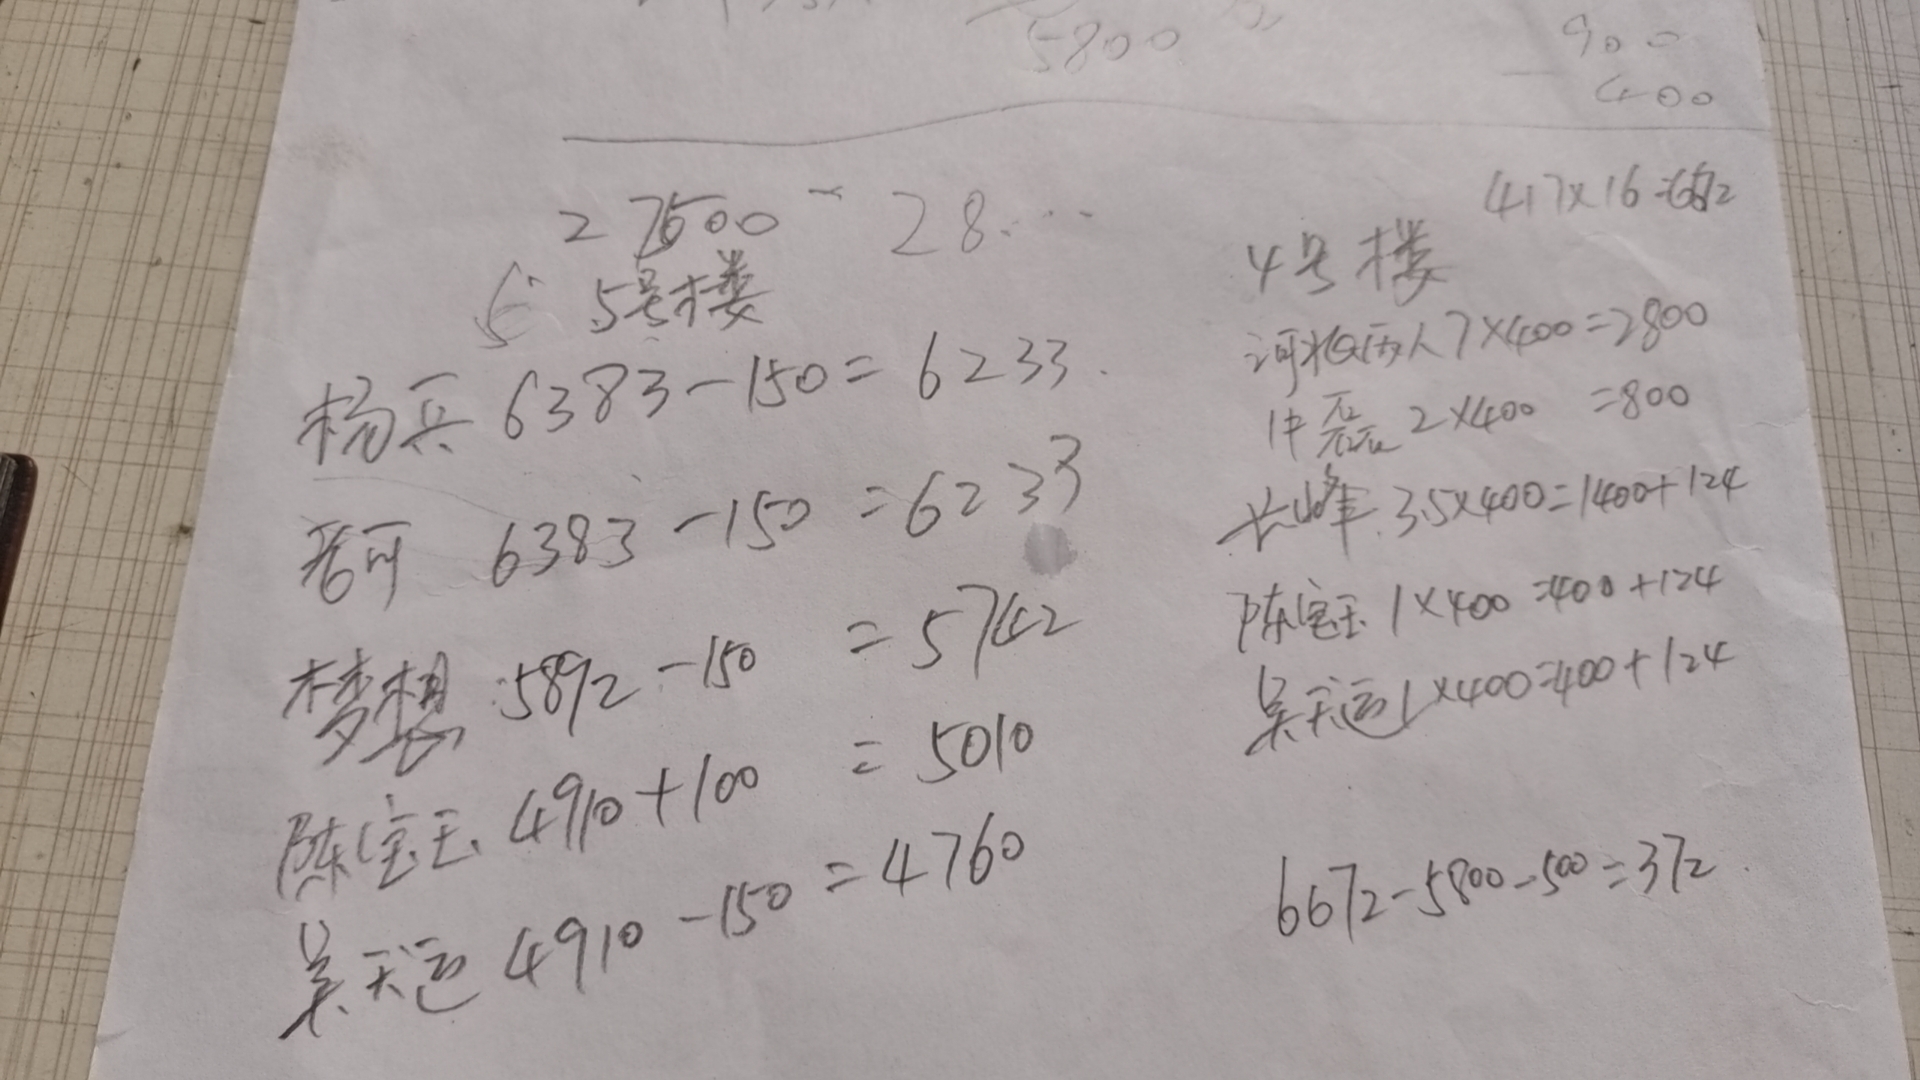 5800
900
- 400
27500 - 28...
5号楼
杨兵 6383-150=6233
若可 6383-150=6233
梦想 5892-150=5742
陈宝玉 4910+100=5010
吴天运 4910-150=4760
417×16=6672
4号楼
河北两人7×400=2800
仲磊 2×400=800
长峰 3.5×400=1400+124
陈宝玉 1×400=400+124
吴天运1×400=400+124
6672-5800-500=372